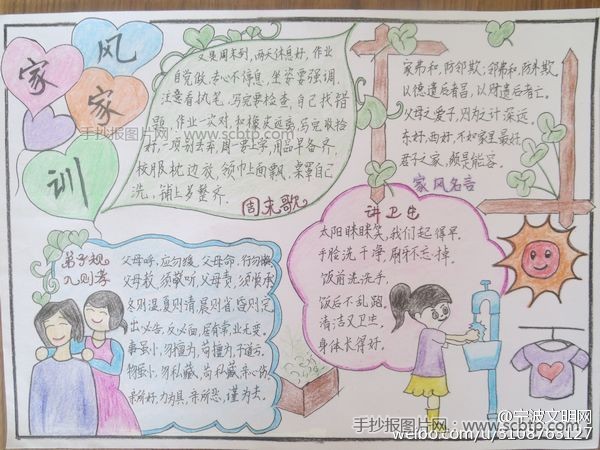 家风
家训
又是周末到,两天休息好,作业
自觉做,专心不停息,坐姿要强调,
注意看执笔,写完要检查,自己找错
题,作业一次对,和橡皮远离,写完收拾
好,一项别丢弃,周一要上学,用品早备齐,
校服枕边放,领巾上面飘,桌罩自己
洗,铺上多整齐.
周末歌
家弟和,防邻欺;邻弟和,防外欺,
以德遗后者昌,以财遗后者亡。
父母之爱子,则为之计深远。
东好,西好,不如家里最好,
君子之家,颇是能容。
家风名言
弟子规
入则孝
父母呼,应勿缓,父母命,行勿懒
父母教,须敬听,父母责,须顺承
冬则温,夏则清,晨则省,昏则定
出必告,反必面,居有常,业无变,
事虽小,勿擅为,苟擅为,子道亏。
物虽小,勿私藏,苟私藏,亲心伤,
亲所好,力为具,亲所恶,谨为去。
讲卫生
太阳眯眯笑,我们起得早,
手脸洗干净,刷牙不忘掉.
饭前洗洗手,
饭后不乱跑,
清洁又卫生,
身体长得好。
手抄报图片网:www.scbtp.com
手抄报图片网:www.scbtp.com
@宁波文明网
weibo.com/u/3108763127